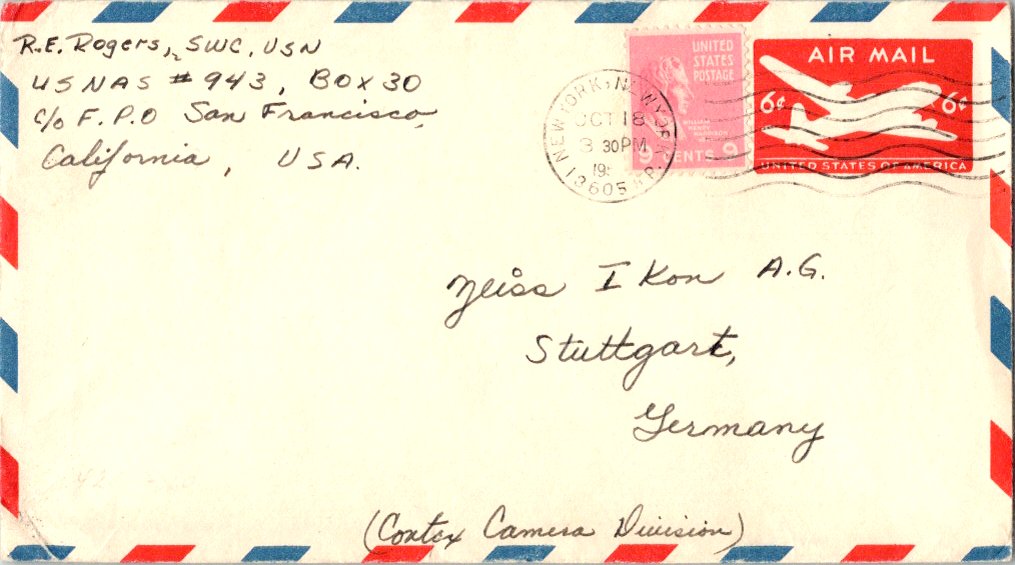 R.E. Rogers, SWC, USN
US NAS # 943, BOX 30
c/o F.P.O San Francisco,
California, USA.
NEW YORK, NEW YORK
OCT 18
3 30 PM
19
UNITED
STATES
POSTAGE
WILLIAM
HENRY
HARRISON
9 CENTS 9
AIR MAIL
6¢ 6¢
UNITED STATES OF AMERICA
Zeiss IKon A.G.
Stuttgart,
Germany
(Contax Camera Division)